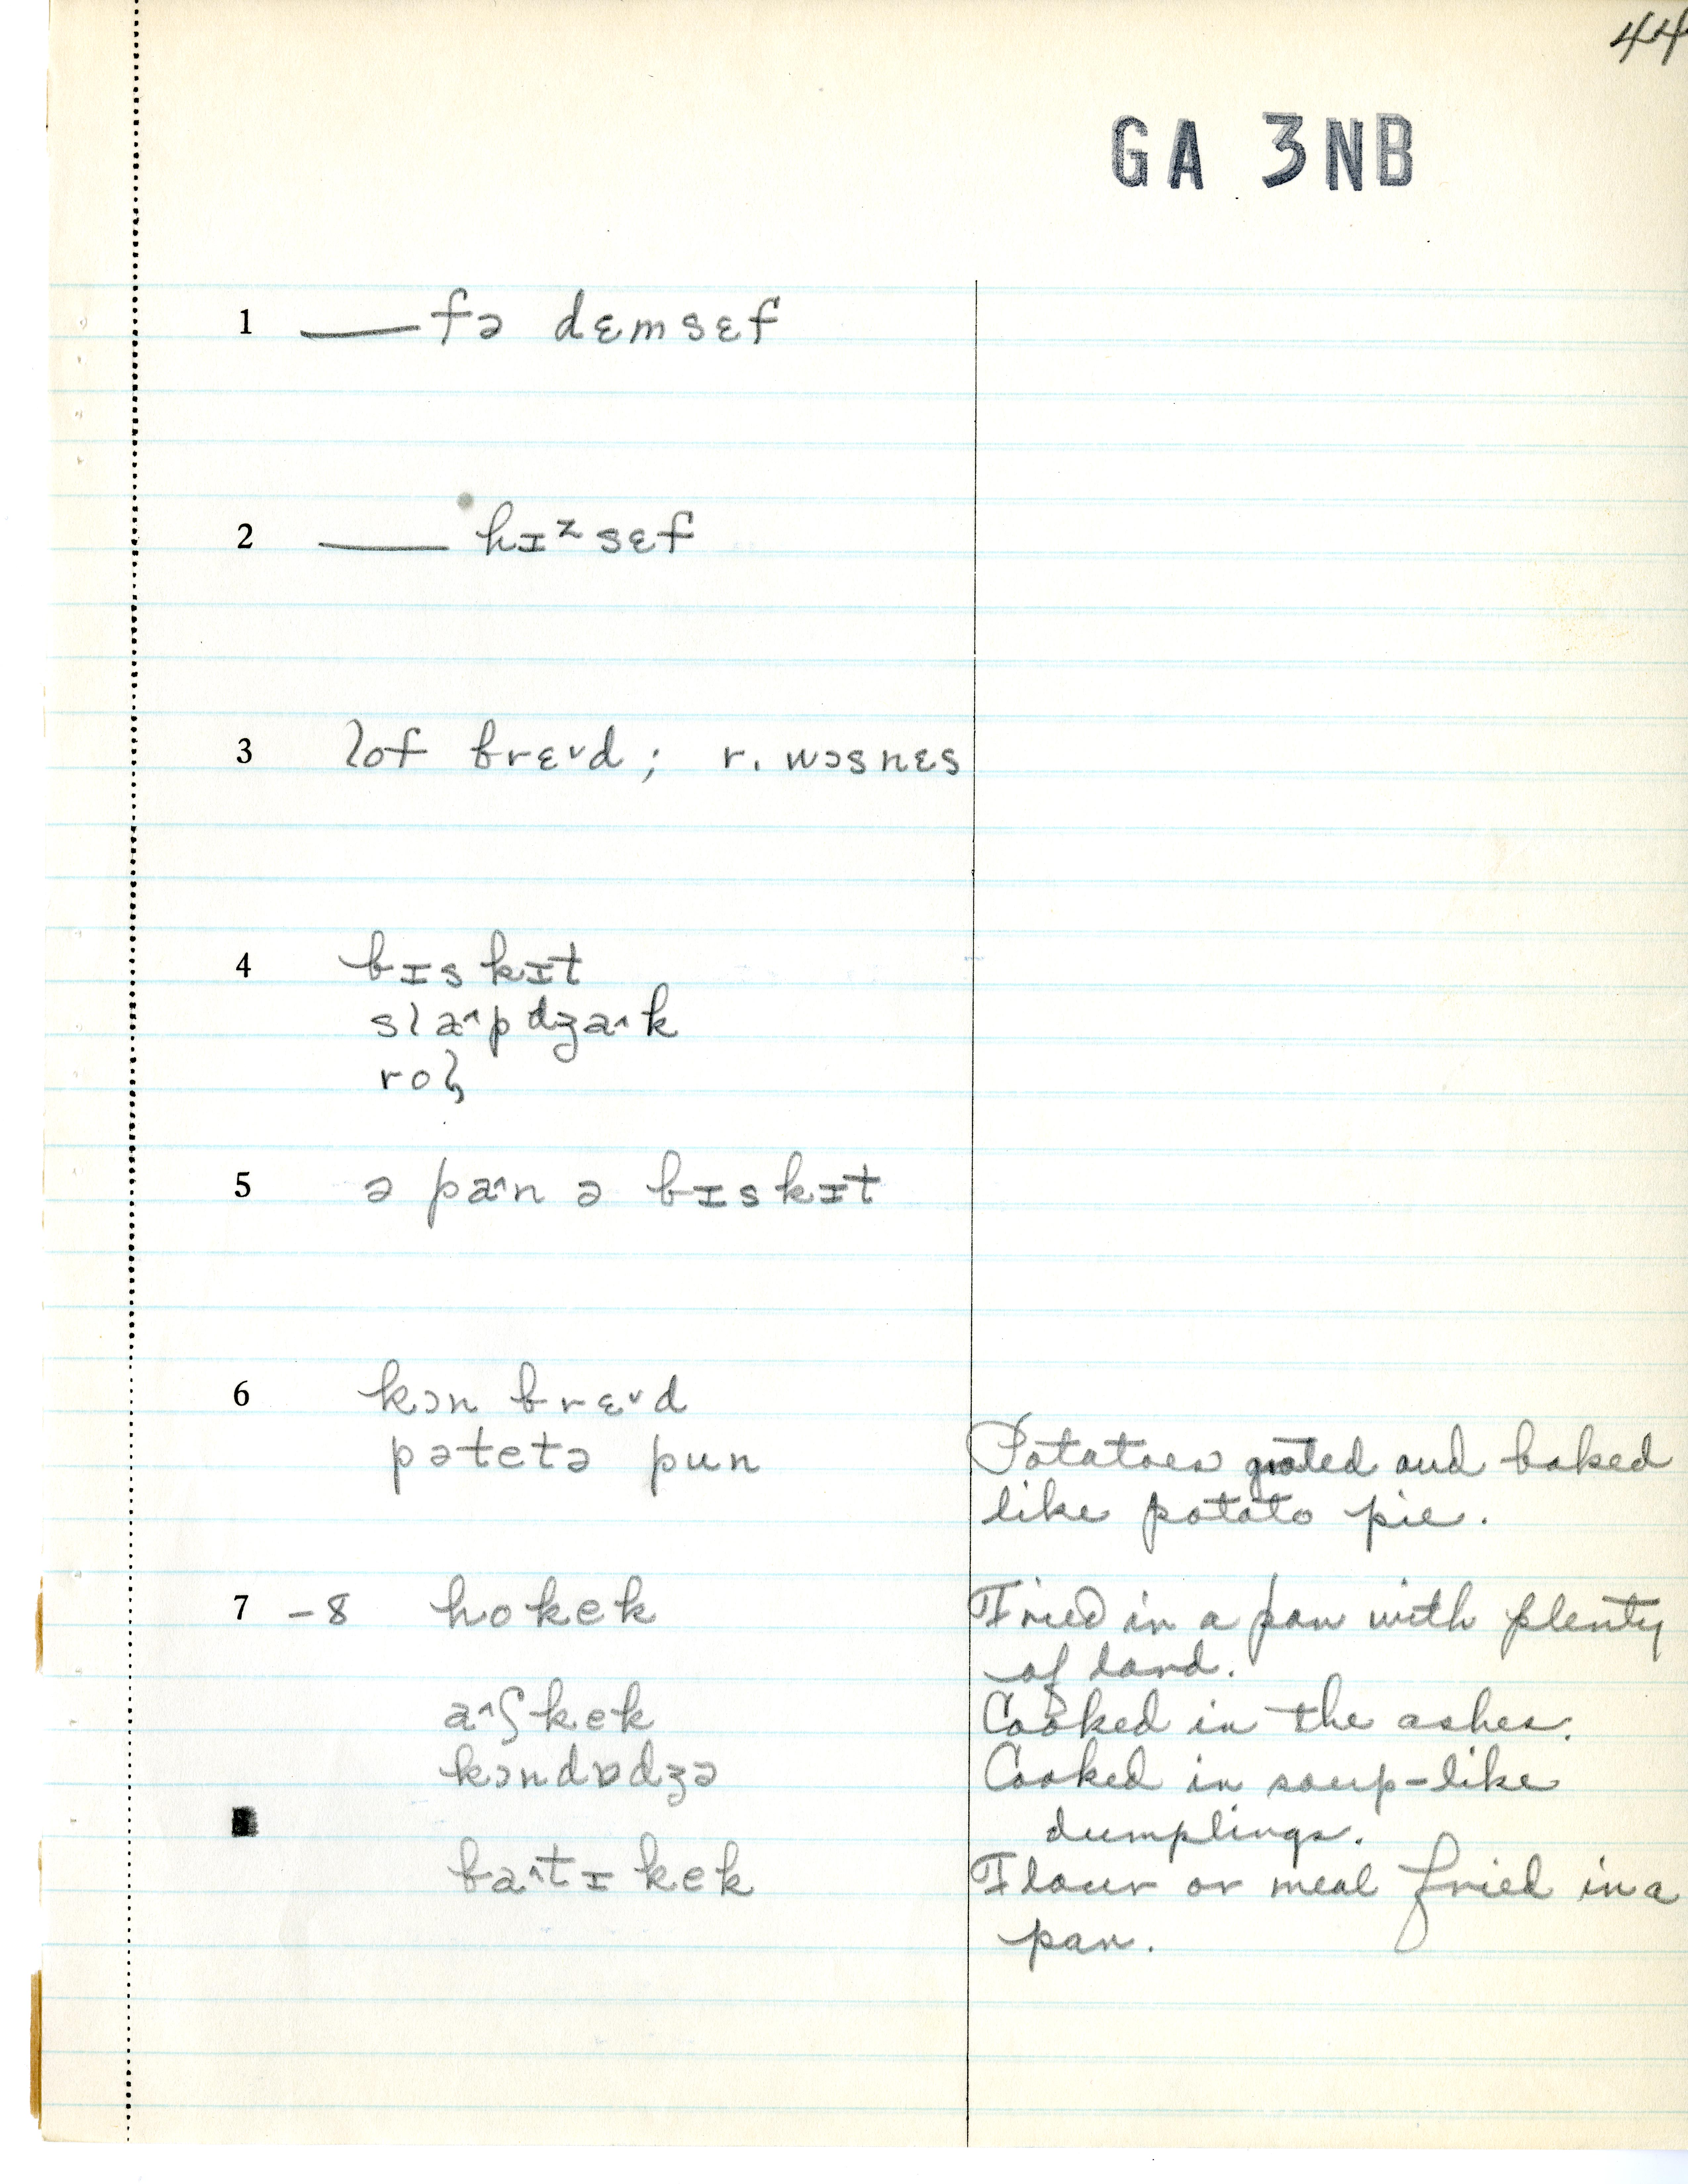 44
GA 3NB
1 —— fə dɛmsɛf
2 —— hɪᶻsɛf
3 lof brɛ˅d; r. wɔsnɛs
4 bɪskɪt
sla˄pdʒa˄k
rolz
5 ə pa˄n ə bɪskɪt
6 kɔn brɛ˅d
pətetə pun Potatoes grated and baked
like potato pie.
7 –8 hokek Fried in a pan with plenty
of lard.
a˄ʃkek Cooked in the ashes.
kɔndɒdʒə Cooked in soup-like
dumplings.
ba˄tɪkek Flour or meal fried in a
pan.